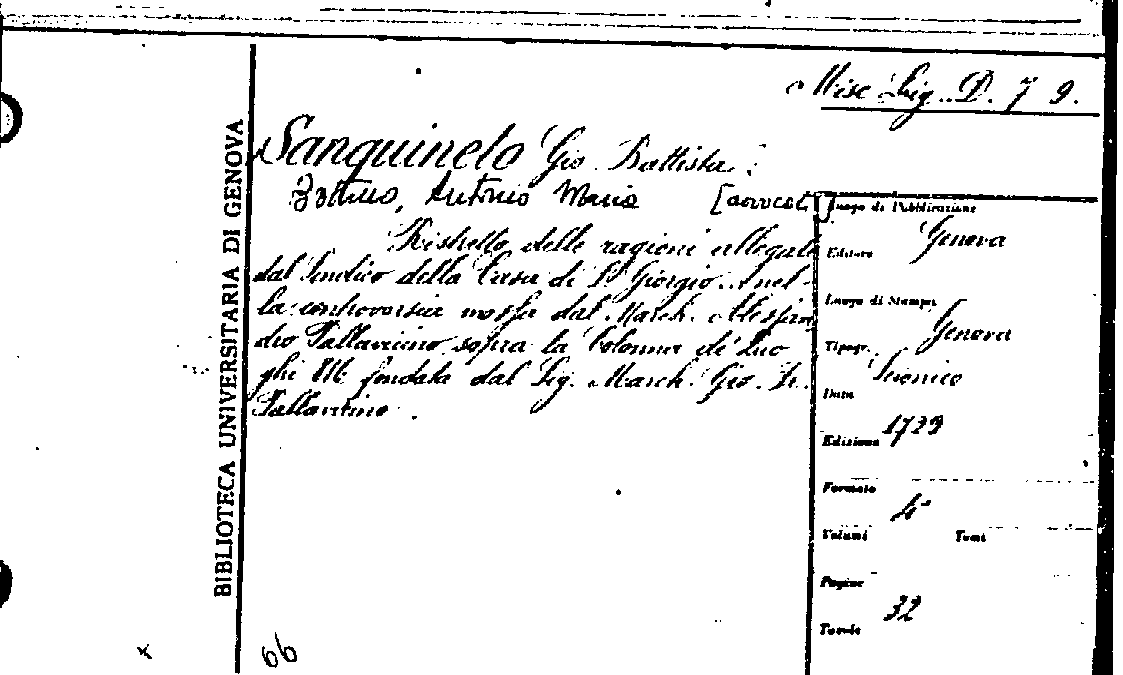 Misc Lig. D. 7 9.
BIBLIOTECA UNIVERSITARIA DI GENOVA
Sanguineto Gio Battista
Antonio Maria [avvocati]
Ristretto delle ragioni allegate
dal Sindico della Casa di S. Giorgio nel-
la controversia mossa dal March. Alessan
dro Pallavicino sopra la Colonna di Luo
ghi 816 fondata dal Sig. March. Gio.
Pallavicino.
Luogo di Pubblicazione
Genova
Editore
Luogo di Stampa
Genova
Tipogr.
Data
Edizione
1729
Formato
4°
Volumi Tomi
Pagine
32
Tavole
66